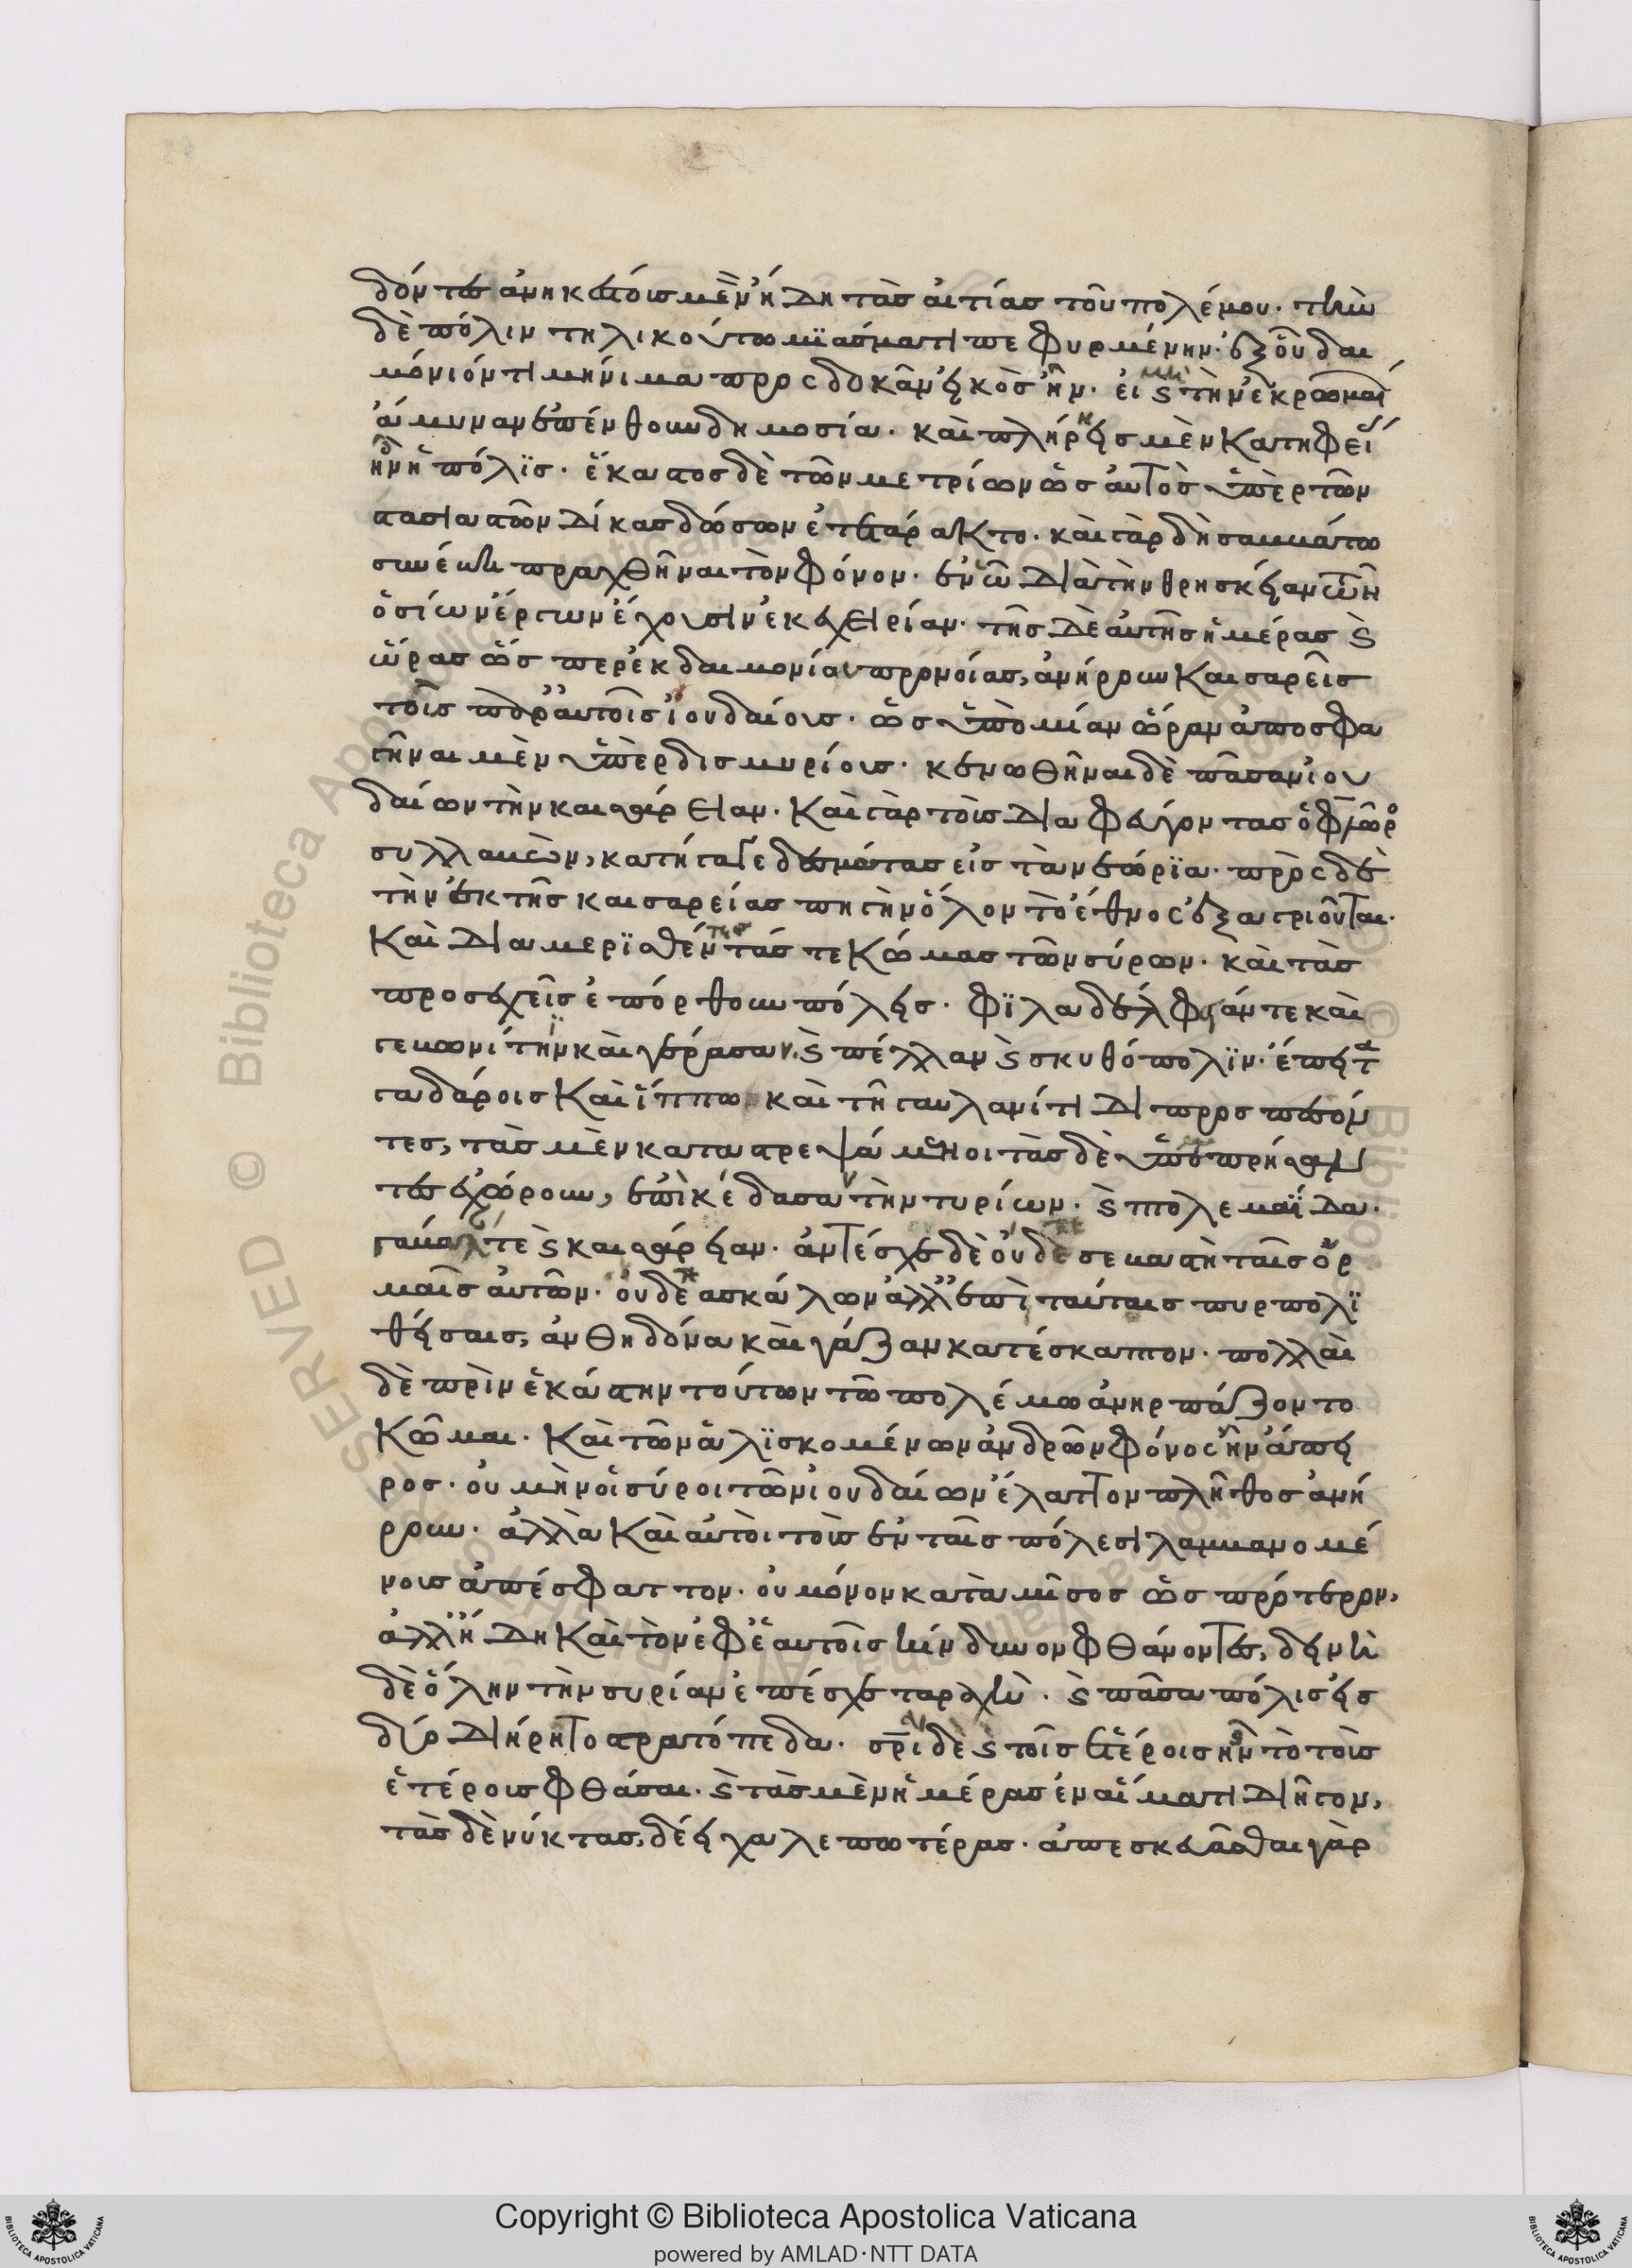 δόντες ἀνηκέστοις μὲν ἤδη τὰς αἰτίας τοῦ πολέμου· τὴν
δὲ πόλιν τηλικούτω μϊάσματι πεφυρμένην· ἐξ οὗ δαι
μόνιόν τι μήνιμα προσδοκᾶν εἰκὸς ἦν· εἰ μὴ καὶ τὴν ἐκ ῥωμαί
ἄμυναν ἐπένθουν δημοσία· καὶ πλήρης μὲν κατηφεί
ἦν ἡ πόλϊς· ἕκαστος δὲ τῶν μετρίων ὡς αὐτὸς ὑπὲρ τῶν
στασιαστῶν δίκας δώσων ἐτετάρακτο· καὶ γὰρ δὴ σαββάτω
συνέβη πραχθῆναι τὸν φόνον· ἐν ὧ διὰ τὴν θρησκείαν καὶ τῶν
ὁσίων ἔργων ἔχουσιν ἐκεχειρίαν· τῆς δὲ αὐτῆς ἡμέρας καὶ
ὥρας ὥσπερ ἐκ δαιμονίου προνοίας, ἀνήρρουν καισαρεῖς
τοῖς παρ' αὐτοῖς ἰουδαίους· ὡς ὑπὸ μίαν ὥραν ἀποσφα
γῆναι μὲν ὑπὲρ δισμυρίους· κενωθῆναι δὲ πᾶσαν ἰου
δαίων τὴν καισάρειαν· καὶ γὰρ τοὺς διαφεύγοντας ὁ φλῶρος
συλλαβὼν, κατήγαγε δεσμώτας εἰς τὰ νεώρϊα· πρὸς δὲ
τὴν ἐκ τῆς καισαρείας πηγὴν ὅλον τὸ ἔθνος ἐξαγριοῦται·
καὶ διαμερϊσθέντες τάς τε κώμας τῶν σύρων· καὶ τὰς
προσεχεῖς ἐπόρθουν πόλεις· φϊλαδέλφειάν τε καὶ
γεβωνίτϊν καὶ γέρασαν καὶ πέλλαν καὶ σκυθόπολϊν· ἔπειτα
γαδάροις καὶ ἵππω καὶ τῆ γαυλανίτιδι προσπεσόν
τες, τὰς μὲν καταστρεψάμενοι τὰς δὲ ὑποπρήσαν
τες ἐχώρουν, ἐπὶ κέδασαν τὴν τυρίων· καὶ πολεμαΐδα·
γάβαλτε καὶ καισάρειαν· ἀντέσχε δὲ οὐδὲ σεβαστὴ ταῖς ὁρ
μαῖς αὐτῶν· οὐδὲ ἀσκάλων ἀλλ' ἐπὶ ταύταις πυρποληϊ
θείσαις, ἀνθηδόνα καὶ γάζαν κατέσκαπτον· πολλαὶ
δὲ πρὶν ἑκάστην τούτων τῶ πολέμω ἀνηρπάζοντο
κῶμαι· καὶ τῶν ἁλϊσκομένων ἀνδρῶν φόνος ἦν ἄπει
ρος· οὐ μὴν οἱ σύροι τῶν ἰουδαίων ἔλαττον πλῆθος ἀνή
ρουν· ἀλλὰ καὶ αὐτοὶ τοὺς ἐν ταῖς πόλεσι λαμβανομέ
νους ἀπέσφαττον· οὐ μόνον κατὰ μῖσος ὡς πρότερον,
ἀλλ' ἤδη καὶ τὸν ἐφ' ἑαυτοῖς κίνδυνον φθάνοντες, δεινὴ
δὲ ὅλην τὴν συρίαν ἐπέσχε ταραχὴ· καὶ πᾶσα πόλις εἰς
δύο διήρητο στρατόπεδα· σρία δὲ καὶ τοῖς ἑτέροις ἦν τὸ τοὺς
ἑτέρους φθάσαι· καὶ τὰς μὲν ἡμέρας ἐν αἵματι διῆγον,
τὰς δὲ νύκτας, δέει χαλεπωτέρας· ἀπεσκευᾶσθαι γὰρ
Copyright © Biblioteca Apostolica Vaticana
powered by AMLAD·NTT DATA